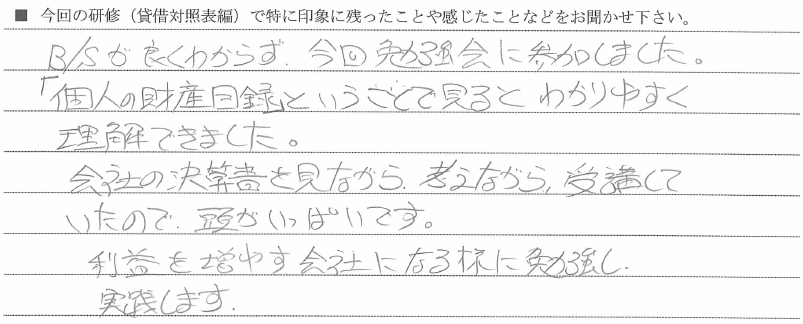 ■ 今回の研修（貸借対照表編）で特に印象に残ったことや感じたことなどをお聞かせ下さい。
B/Sが良くわからず、今回勉強会に参加しました。
「個人の財産目録」ということで見ると わかりやすく
理解できました。
会社の決算書を見ながら、考えながら、受講して
いたので、頭がいっぱいです。
利益を増やす会社になる様に勉強し、
実践します。